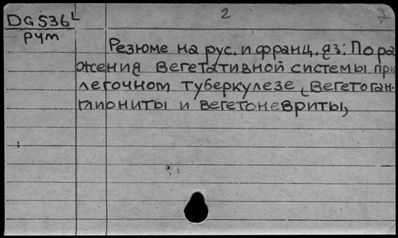 DG 536 L
2
рум
Резюме на рус. и франц. яз: Пора
жения вегетативной системы при
легочном туберкулезе (вегетоган-
глиониты и вегетоневриты)